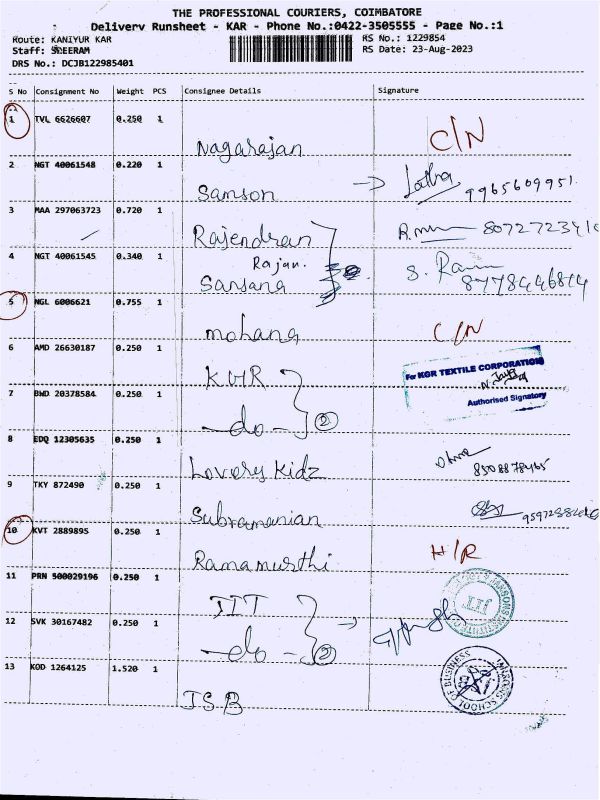 THE PROFESSIONAL COURIERS, COIMBATORE
Delivery Runsheet - KAR - Phone No.:0422-3505555 - Page No.:1
Route: KANIYUR KAR RS No.: 1229854
Staff: SREERAM RS Date: 23-Aug-2023
DRS No.: DCJB122985401
S No Consignment No Weight PCS Consignee Details Signature
1 TVL 6626607 0.250 1
Nagarajan C/N
2 NGT 40061548 0.220 1
Samson → Latha 9965609951
3 MAA 297063723 0.720 1
Rajendran
4 NGT 40061545 0.340 1
Rajan.
Sanjana S. Ram
5 NGL 6006621 0.755 1
mohana C/N
6 AMD 26630187 0.250 1
KGR
For KGR TEXTILE CORPORATION
Authorised Signatory
7 BWD 20378584 0.250 1
-do- 2
8 EDQ 12305635 0.250 1
Lovery Kidz
9 TKY 872490 0.250 1
Subramanian
10 KVT 2889895 0.250 1
Ramamurthi H/R
11 PRN 500029196 0.250 1
IIT
12 SVK 30167482 0.250 1
-do- 2 →
13 KOD 1264125 1.520 1
JSB